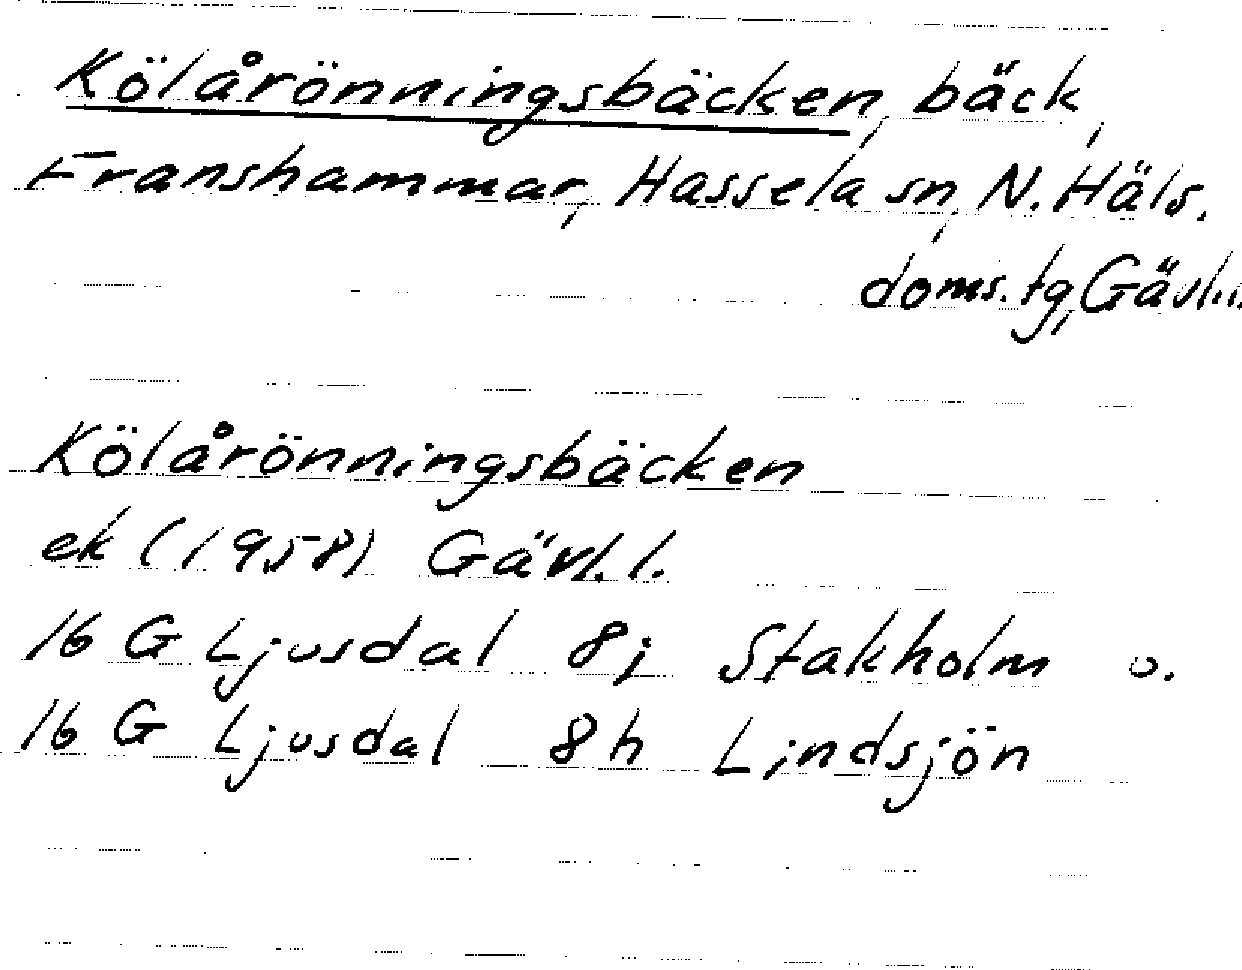 Kölårönningsbäcken, bäck,
Franshammar, Hassela sn, N. Häls.
doms. tg, Gävl.l.
Kölårönningsbäcken
ek (1958) Gävl. l.
16 G Ljusdal 8i Stakholm o.
16 G Ljusdal 8h Lindsjön